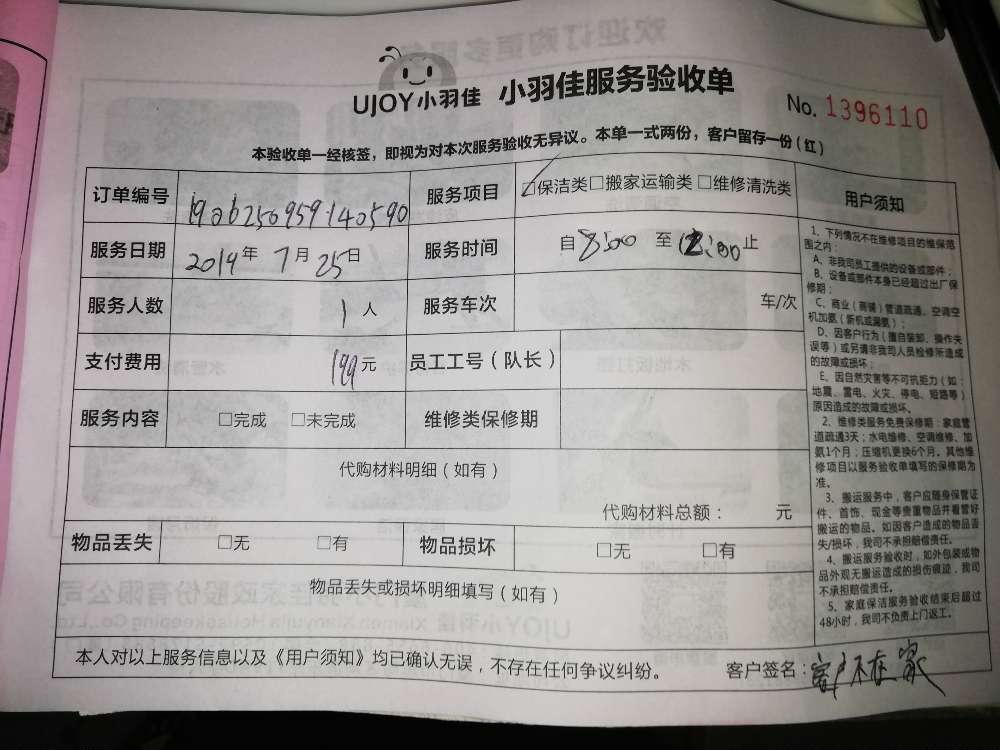 UJOY小羽佳 小羽佳服务验收单
No. 1396110
本验收单一经核签，即视为对本次服务验收无异议。本单一式两份，客户留存一份（红）
订单编号 服务项目 ☑保洁类□搬家运输类□维修清洗类
服务日期 2019年7月25日 服务时间 自8:00至12:00止
服务人数 1人 服务车次 车/次
支付费用 199元 员工工号（队长）
服务内容 □完成 □未完成 维修类保修期
代购材料明细（如有）
代购材料总额： 元
物品丢失 □无 □有 物品损坏 □无 □有
物品丢失或损坏明细填写（如有）
本人对以上服务信息以及《用户须知》均已确认无误，不存在任何争议纠纷。 客户签名：客户不在家
用户须知
1、下列情况不在维修项目的维保范
围之内：
A、非我司员工提供的设备或部件；
B、设备或部件本身已经超过出厂保
修期；
C、商业（商铺）管道疏通、空调空
机加氨（新机或漏氨）；
D、因客户行为（擅自装卸、操作失
误等）或另请非我司人员检修所造成
的故障或损坏；
E、因自然灾害等不可抗拒力（如：
地震、雷电、火灾、停电、短路等）
原因造成的故障或损坏。
2、维修类服务免费保修期：家庭管
道疏通3天；水电维修、空调维修、加
氨1个月；压缩机更换6个月。其他维
修项目以服务验收单填写的保修期为
准。
3、搬运服务中，客户应随身保管证
件、首饰、现金等贵重物品并看管好
搬运的物品。如因客户造成的物品丢
失/损坏，我司不承担赔偿责任。
4、搬运服务验收时，如外包装或物
品外观无搬运造成的损伤痕迹，我司
不承担赔偿责任。
5、家庭保洁服务验收结束后超过
48小时，我司不负责上门返工。